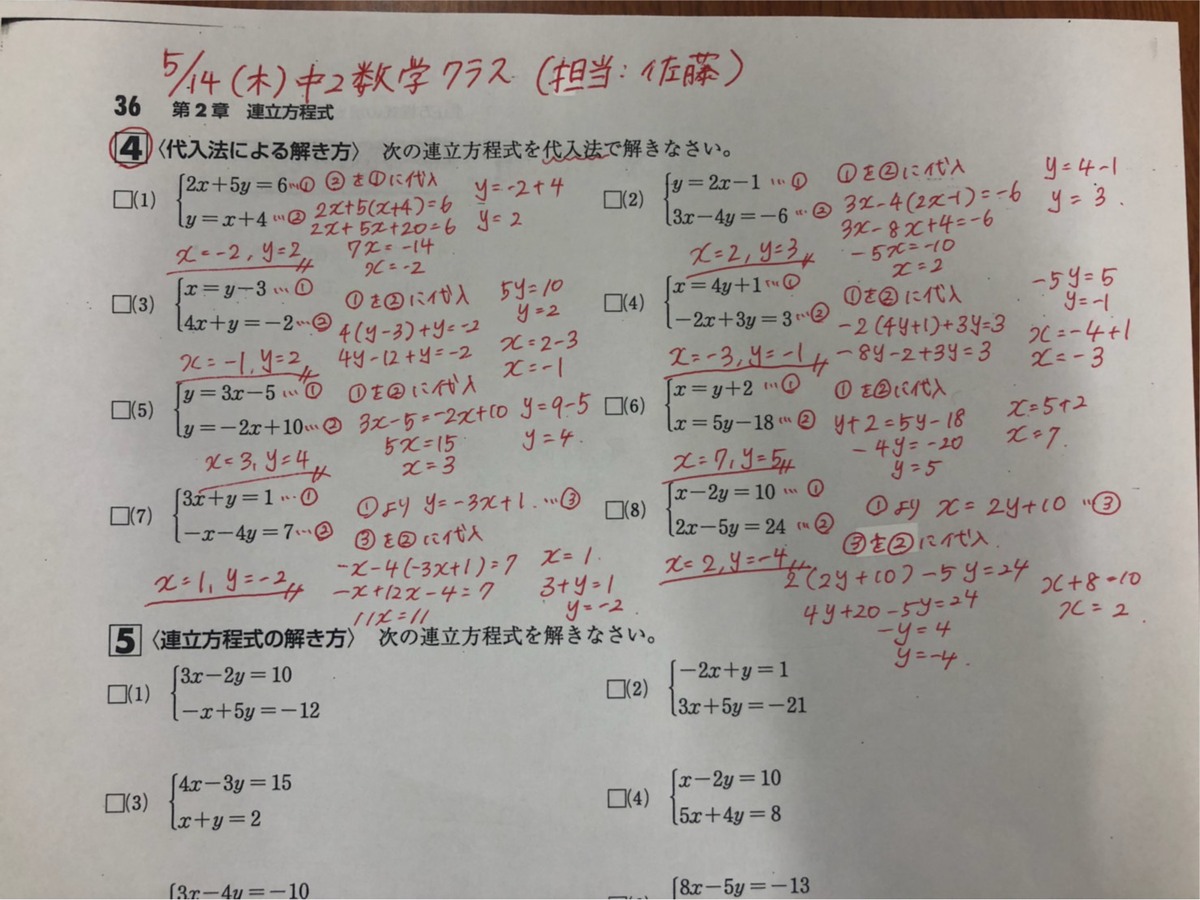 5/14(木)中2数学クラス(担当:佐藤)
36 第2章 連立方程式
4 〈代入法による解き方〉 次の連立方程式を代入法で解きなさい。
□(1)
2x+5y=6…①
y=x+4…②
②を①に代入
2x+5(x+4)=6
2x+5x+20=6
7x=-14
x=-2
y=-2+4
y=2
x=-2, y=2
□(2)
y=2x-1…①
3x-4y=-6…②
①を②に代入
3x-4(2x-1)=-6
3x-8x+4=-6
-5x=-10
x=2
y=4-1
y=3.
x=2, y=3
□(3)
x=y-3…①
4x+y=-2…②
①を②に代入
4(y-3)+y=-2
4y-12+y=-2
5y=10
y=2
x=2-3
x=-1
x=-1, y=2
□(4)
x=4y+1…①
-2x+3y=3…②
①を②に代入
-2(4y+1)+3y=3
-8y-2+3y=3
-5y=5
y=-1
x=-4+1
x=-3
x=-3, y=-1
□(5)
y=3x-5…①
y=-2x+10…②
①を②に代入
3x-5=-2x+10
5x=15
x=3
y=9-5
y=4.
x=3, y=4
□(6)
x=y+2…①
x=5y-18…②
①を②に代入
y+2=5y-18
-4y=-20
y=5
x=5+2
x=7.
x=7, y=5
□(7)
3x+y=1…①
-x-4y=7…②
①より y=-3x+1…③
③を②に代入
-x-4(-3x+1)=7
-x+12x-4=7
11x=11
x=1.
3+y=1
y=-2.
x=1, y=-2
□(8)
x-2y=10…①
2x-5y=24…②
①より x=2y+10…③
③を②に代入.
2(2y+10)-5y=24
4y+20-5y=24
-y=4
y=-4.
x+8=10
x=2.
x=2, y=-4
5 〈連立方程式の解き方〉 次の連立方程式を解きなさい。
□(1)
3x-2y=10
-x+5y=-12
□(2)
-2x+y=1
3x+5y=-21
□(3)
4x-3y=15
x+y=2
□(4)
x-2y=10
5x+4y=8
3x-4y=-10
8x-5y=-13